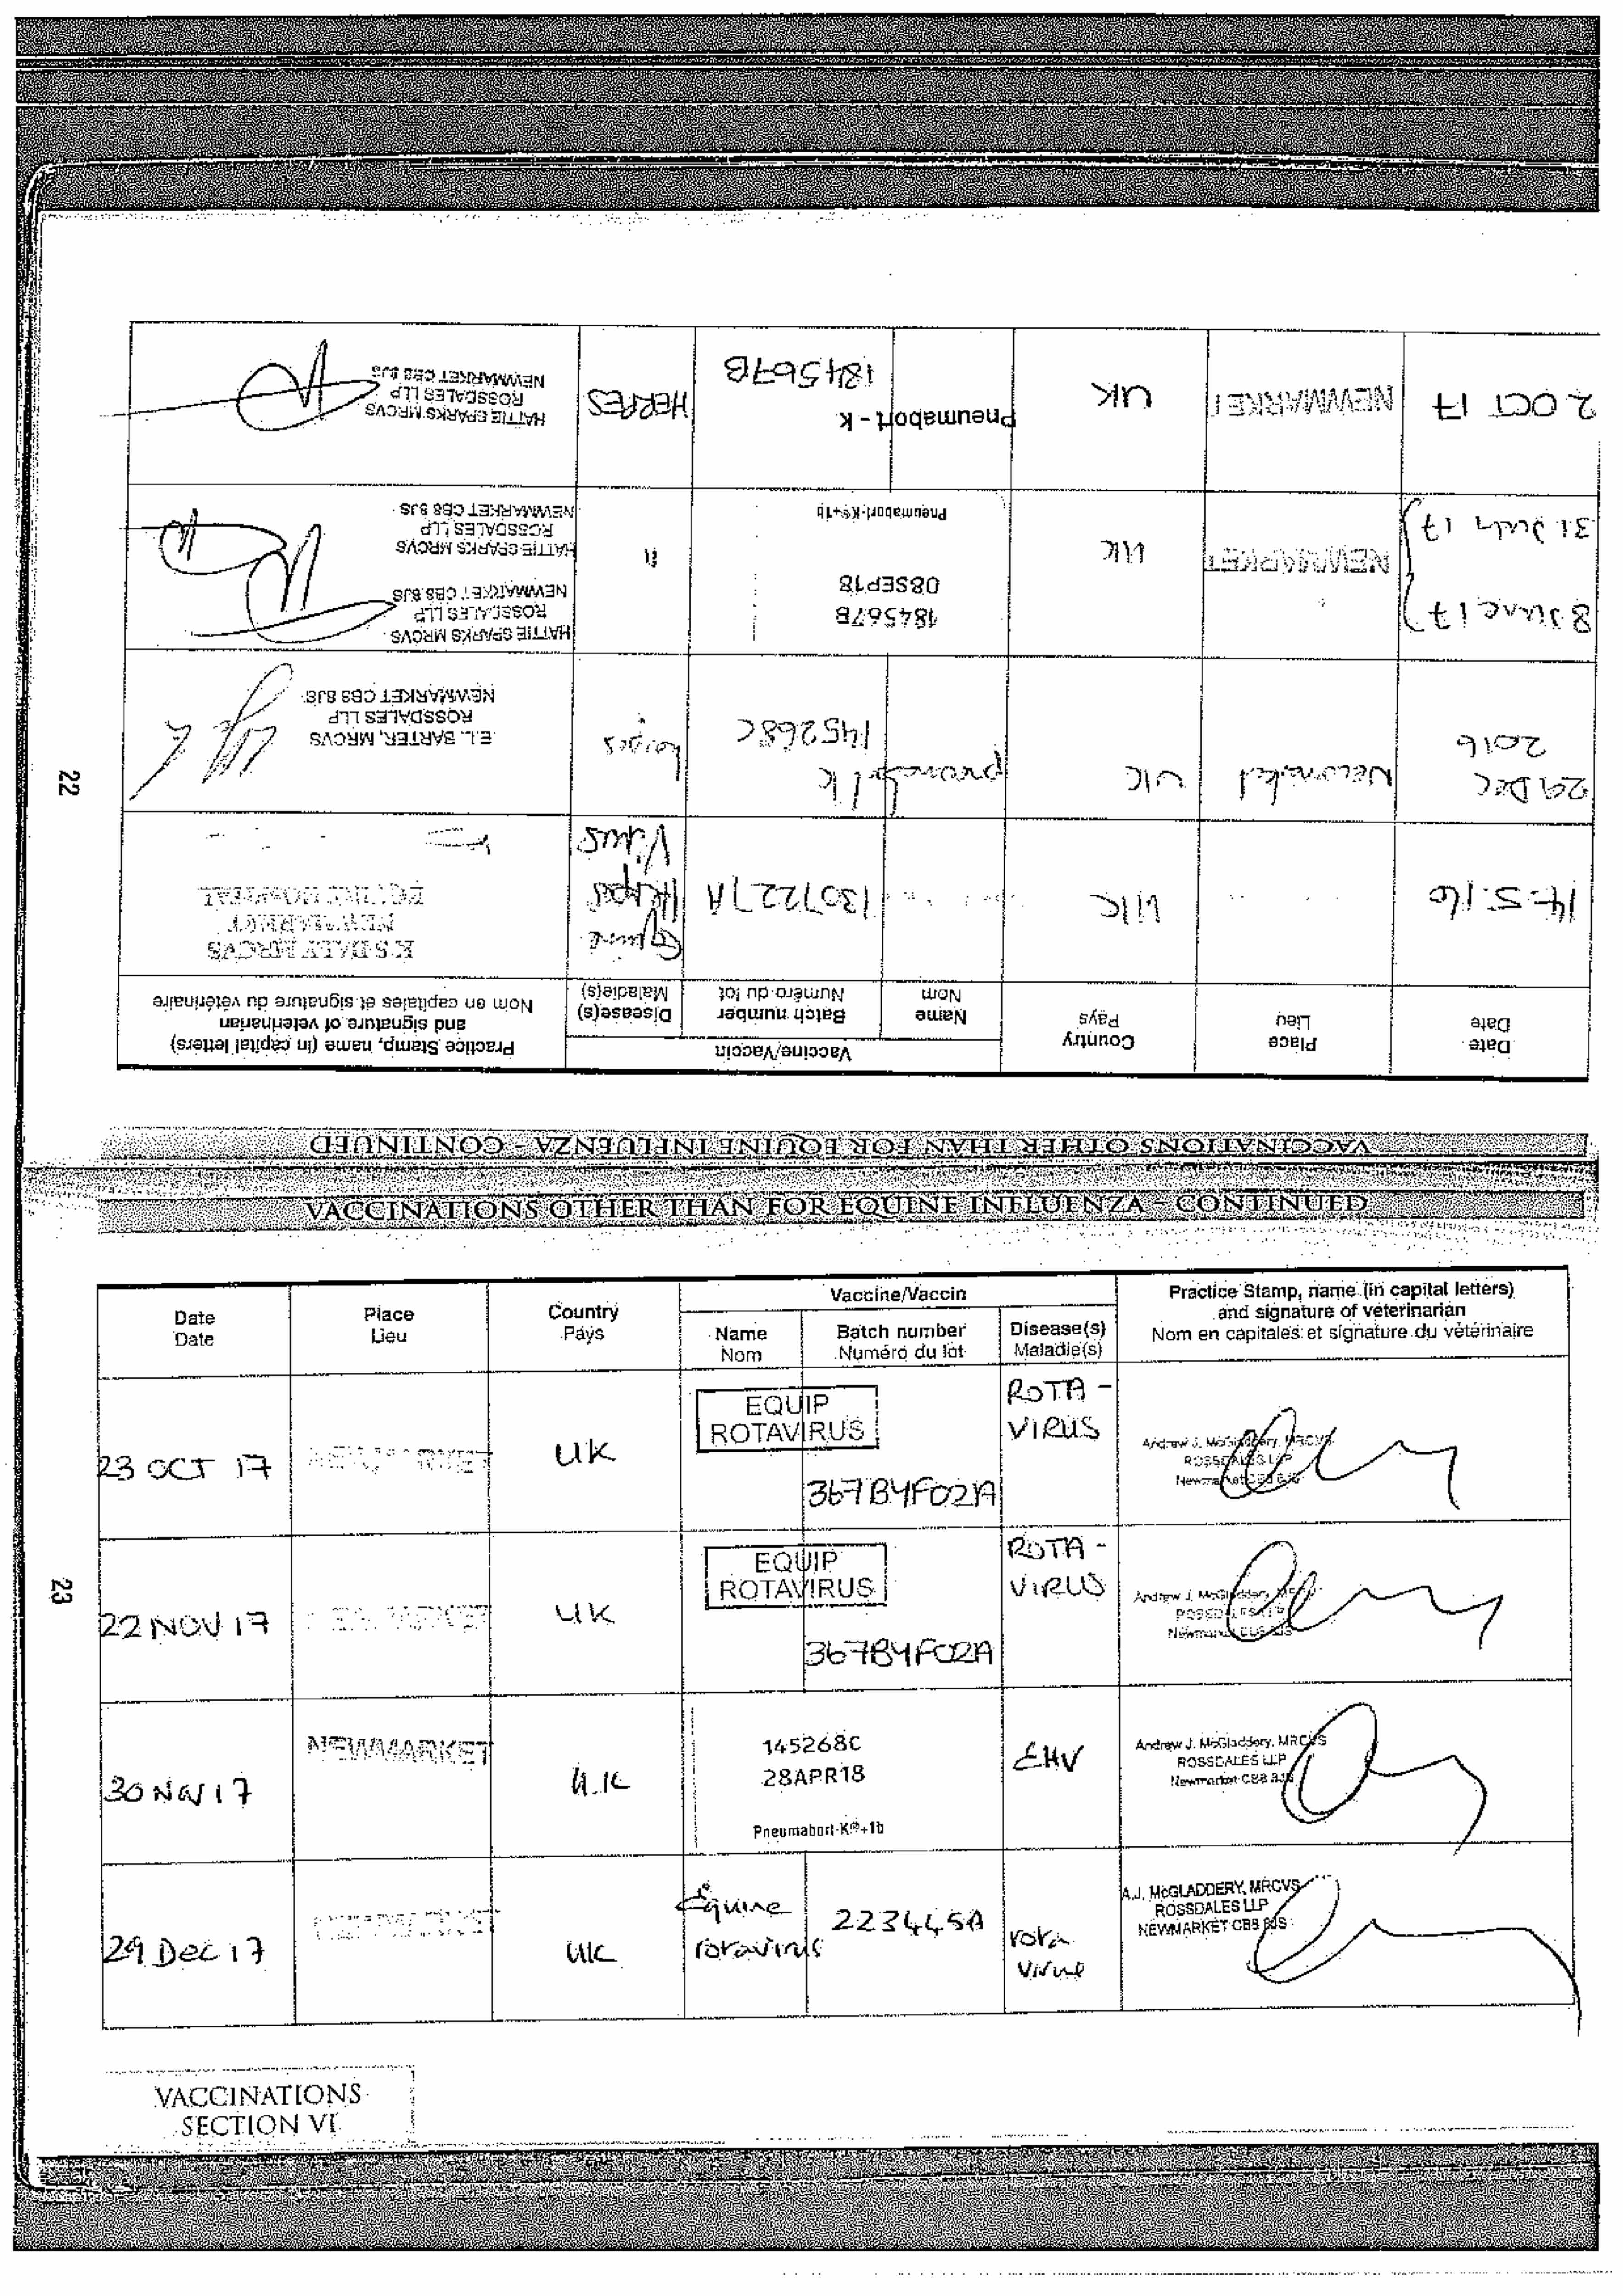 22
VACCINATIONS OTHER THAN FOR EQUINE INFLUENZA - CONTINUED
Date
Date
Place
Lieu
Country
Pays
Vaccine/Vaccin
Name
Nom
Batch number
Numéro du lot
Disease(s)
Maladie(s)
Practice Stamp, name (in capital letters)
and signature of veterinarian
Nom en capitales et signature du vétérinaire
14.5.16
UK
1307227A
Equine
Herpes
Virus
K S DALY MRCVS
NEWMARKET
EQUINE HOSPITAL
29 DEC
2016
Newmarket
UK
pneumabort k
145268C
herpes
E.L. BARTER, MRCVS
ROSSDALES LLP
NEWMARKET CB8 8JS
8 June 17
31 July 17
NEWMARKET
UK
184567B
08SEP18
Pneumabort-K®+1b
"
HATTIE SPARKS MRCVS
ROSSDALES LLP
NEWMARKET CB8 8JS
HATTIE SPARKS MRCVS
ROSSDALES LLP
NEWMARKET CB8 8JS
2 OCT 17
NEWMARKET
UK
Pneumabort - K
184567B
HERPES
HATTIE SPARKS MRCVS
ROSSDALES LLP
NEWMARKET CB8 8JS
VACCINATIONS OTHER THAN FOR EQUINE INFLUENZA - CONTINUED
23
Date
Date
Place
Lieu
Country
Pays
Vaccine/Vaccin
Name
Nom
Batch number
Numéro du lot
Disease(s)
Maladie(s)
Practice Stamp, name (in capital letters)
and signature of veterinarian
Nom en capitales et signature du vétérinaire
23 OCT 17
NEWMARKET
UK
EQUIP
ROTAVIRUS
367B4F021A
ROTA -
VIRUS
Andrew J. McGladdery, MRCVS
ROSSDALES LLP
Newmarket CB8 8JS
22 NOV 17
NEWMARKET
UK
EQUIP
ROTAVIRUS
367B4F02A
ROTA -
VIRUS
Andrew J. McGladdery, MRCVS
ROSSDALES LLP
Newmarket CB8 8JS
30 Nov 17
NEWMARKET
U.K
145268C
28APR18
Pneumabort-K®+1b
EHV
Andrew J. McGladdery, MRCVS
ROSSDALES LLP
Newmarket CB8 8JS
29 Dec 17
NEWMARKET
UK
Equine
rotavirus
223445A
rota
virus
A.J. McGLADDERY, MRCVS
ROSSDALES LLP
NEWMARKET CB8 8JS
VACCINATIONS
SECTION VI